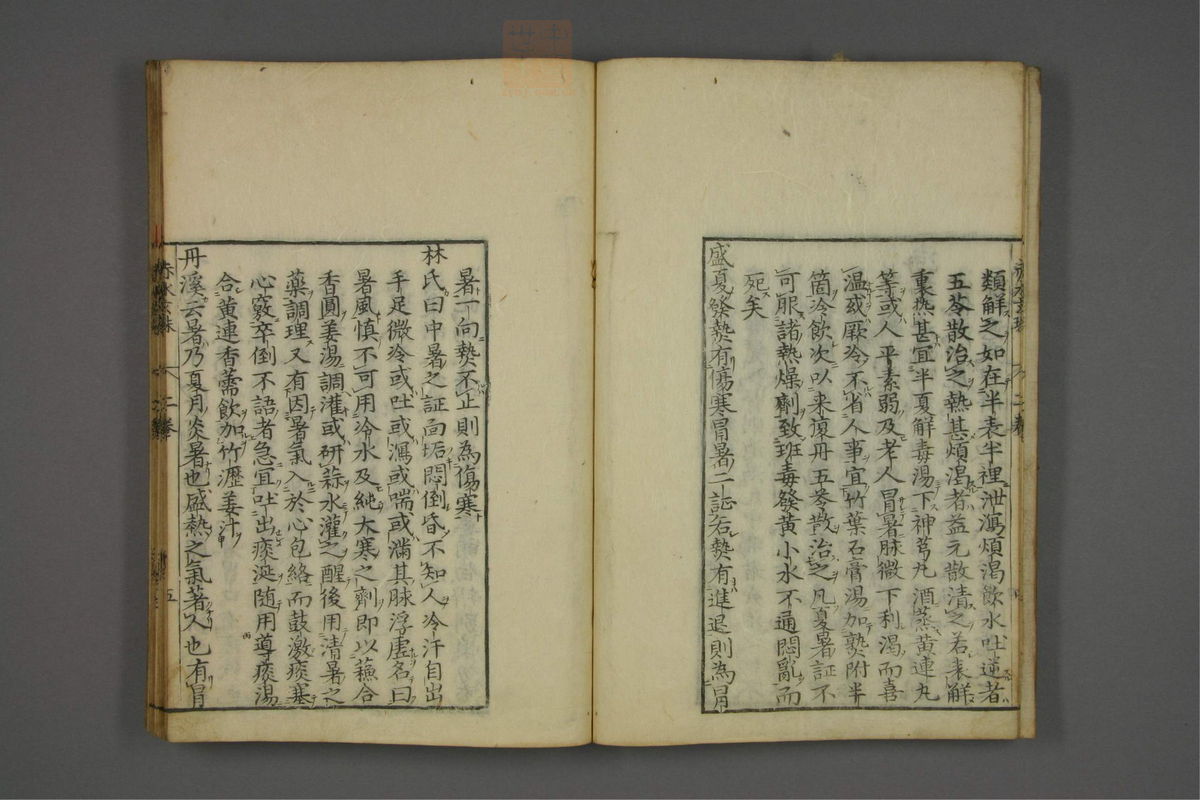 類解之如在半表半裡泄瀉煩渴飲水吐逆者
五苓散治之熱甚煩渴者益元散清之若表解
裏熱甚宜半夏解毒湯下神芎丸酒蒸黄連丸
等或人平素弱及老人冒暑脉微下利渴而喜
温或厥冷不省人事宜竹葉石膏湯加熟附半
箇冷飲次以来復丹五苓散治之凡夏暑証不
可服諸熱燥劑致斑毒發黄小水不通悶亂而
死矣
盛夏發熱有傷寒冒暑二証若熱有進退則為冒
暑一向熱不止則為傷寒
林氏曰中暑之証面垢悶倒昏不知人冷汗自出
手足微冷或吐或瀉或喘或滿其脉浮虚名曰
暑風慎不可用冷水及純大寒之劑即以蘓合
香圓姜湯調灌或研蒜水灌之醒後用清暑之
藥調理又有因暑氣入於心包絡而鼓激痰塞
心竅卒倒不語者急宜吐出痰涎随用導痰湯
合黄連香薷飲加竹瀝姜汁
丹溪云暑乃夏月炎暑也盛熱之氣著人也有冒
二巻
五